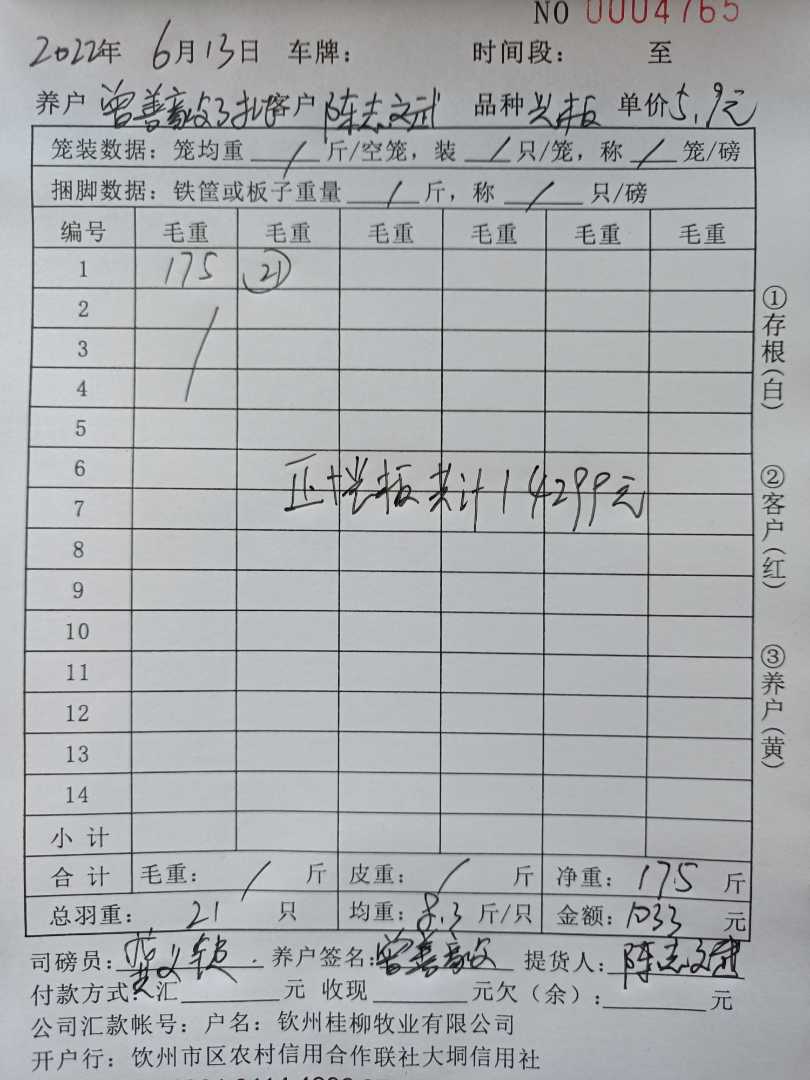 NO 0004765
2022年 6月13日 车牌: 时间段: 至
养户 曾善豪 客户 陈志文武 品种 单价5.9元
笼装数据: 笼均重 / 斤/空笼, 装 / 只/笼, 称 / 笼/磅
捆脚数据: 铁筐或板子重量 / 斤, 称 / 只/磅
编号 毛重 毛重 毛重 毛重 毛重 毛重
1 175 21
2
3
4
5
6
7
正+ 板共计14299元
8
9
10
11
12
13
14
小计
合计 毛重: / 斤 皮重: / 斤 净重: 175 斤
总羽重: 21 只 均重: 8.3 斤/只 金额: 1033 元
司磅员: 养户签名: 曾善豪 提货人: 陈志文
付款方式: 汇 元 收现 元欠(余): 元
公司汇款帐号: 户名: 钦州桂柳牧业有限公司
开户行: 饮州市区农村信用合作联社大垌信用社
①存根(白)
②客户(红)
③养户(黄)